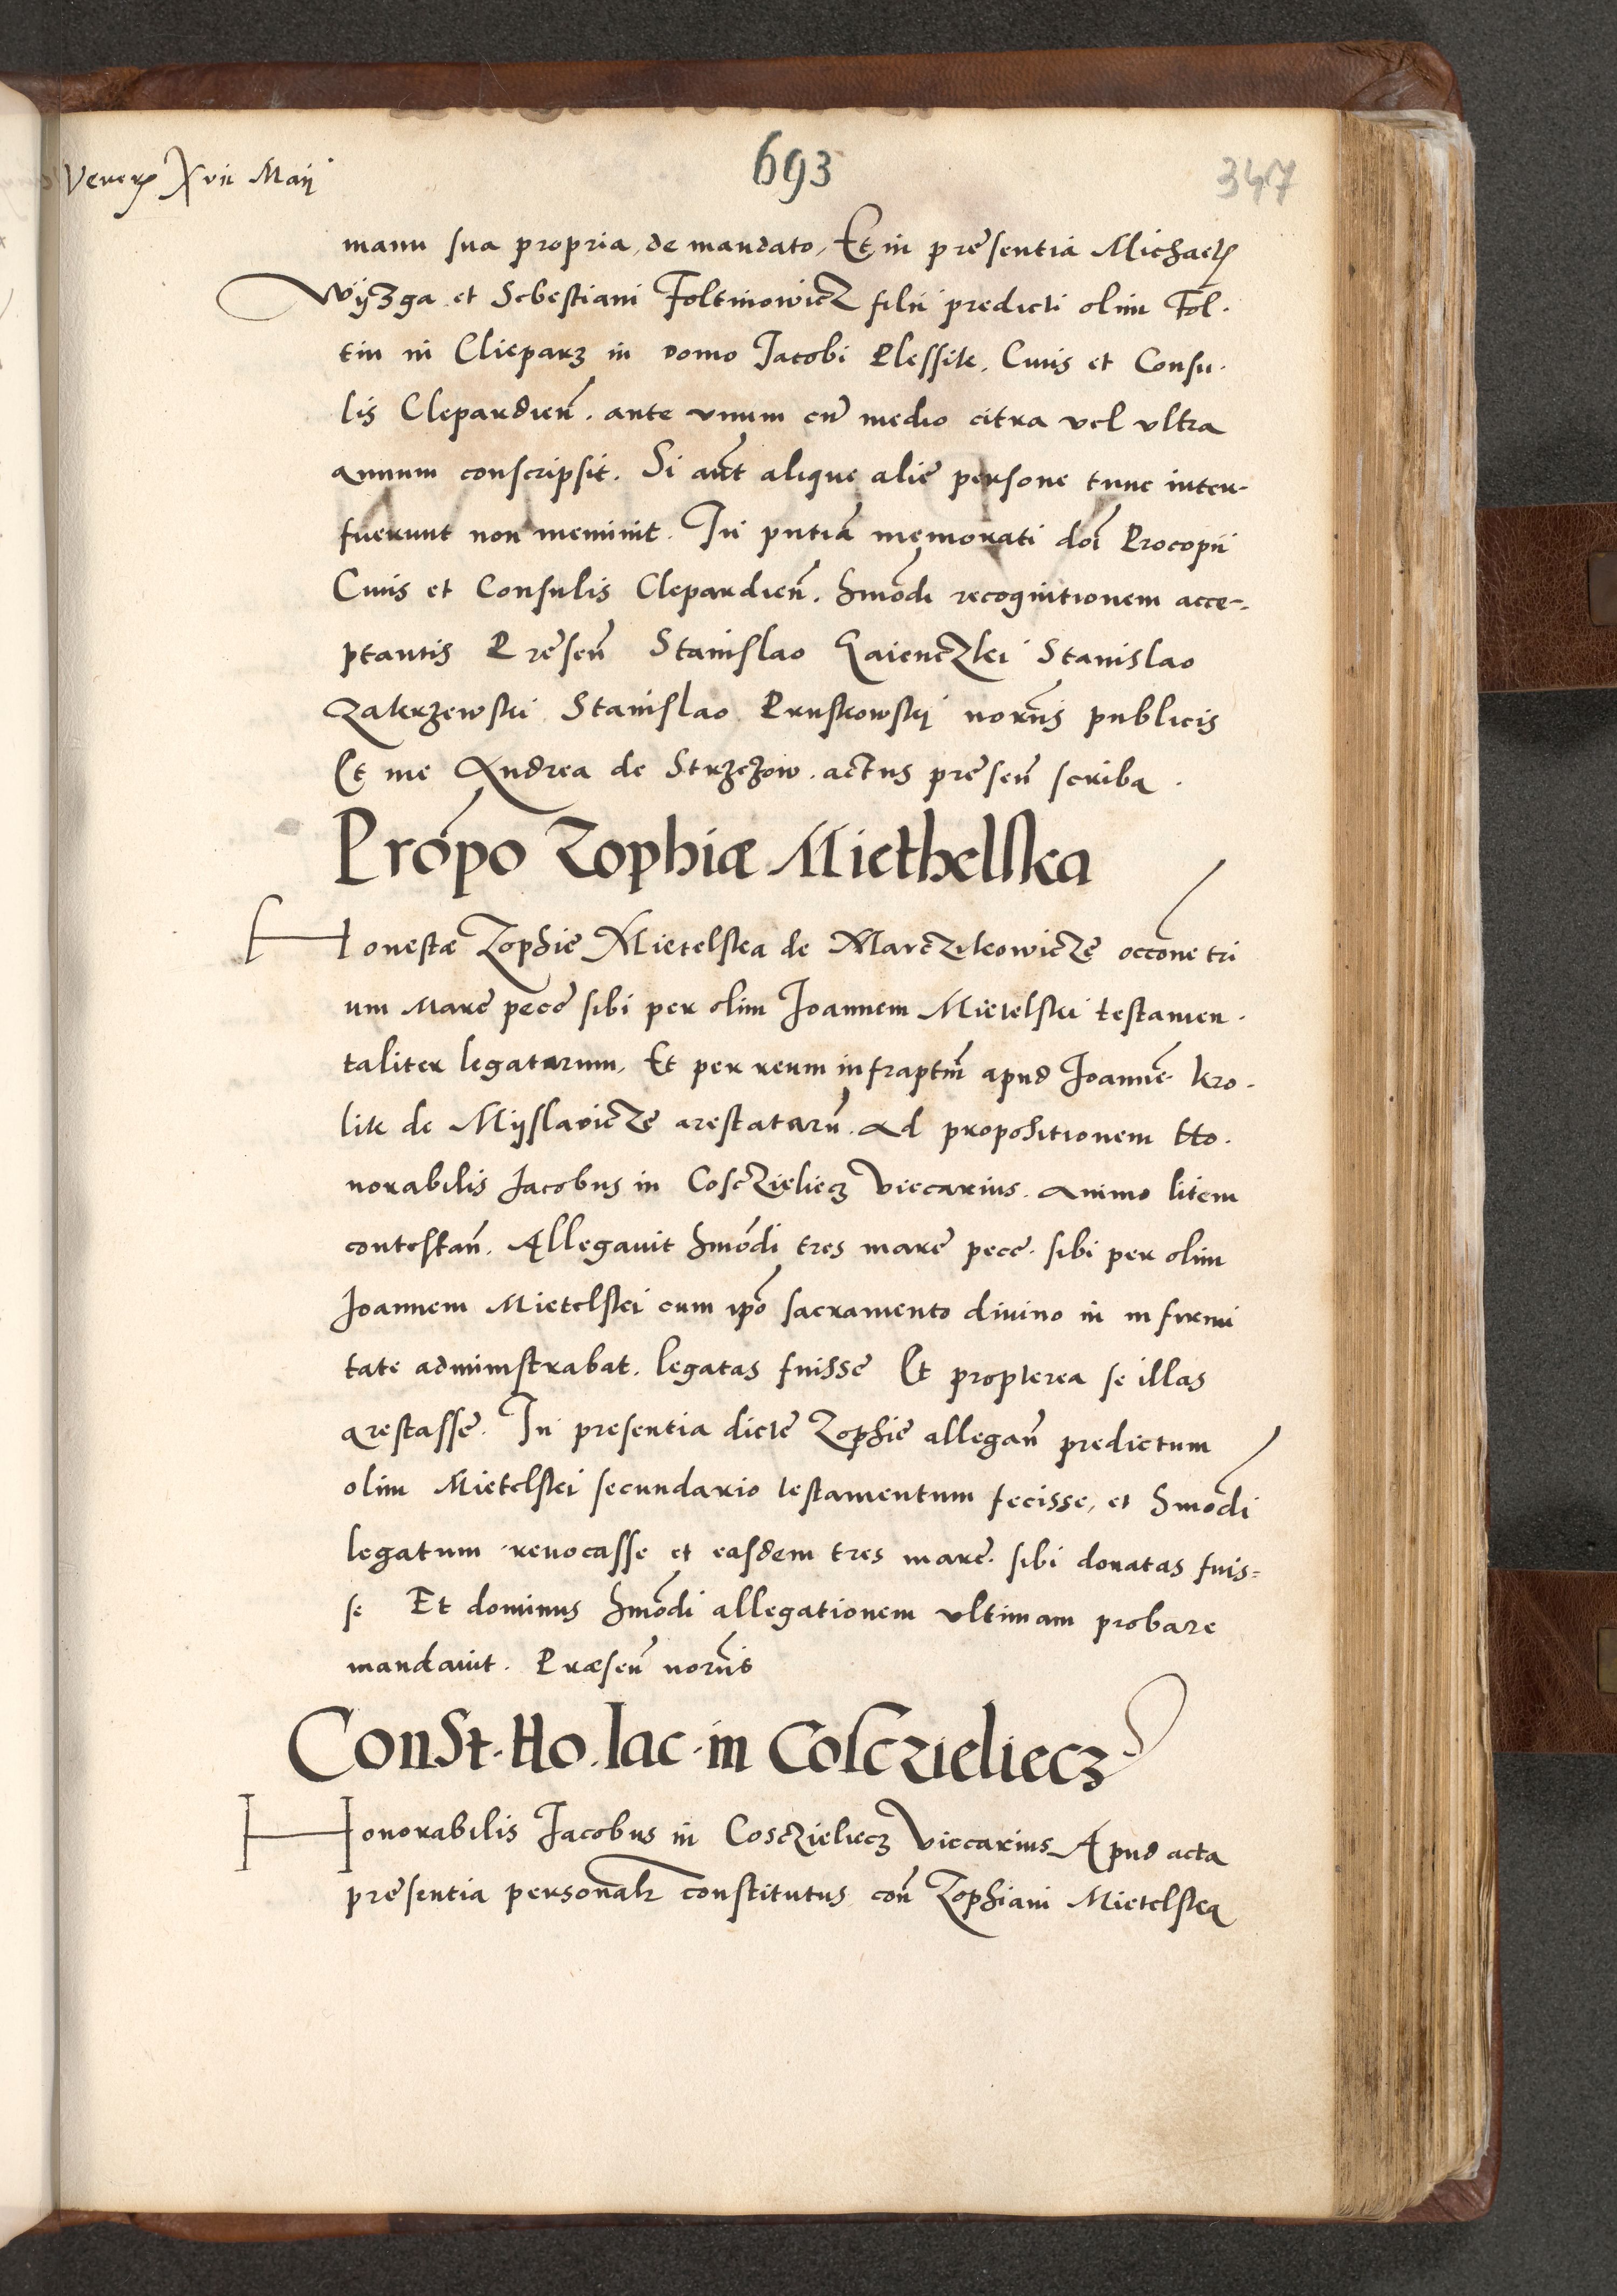 693
347
Veneris Xvii Maij
manu sua propria, de mandato, Et in presentia Michaelis
Wijzga et Sebestiani Foltinowicz filii predicti olim Fol.
tin in Clieparz in domo Jacobi Plessik. Ciuis et Consu.
lis Clepardien̄. ante vnum cū medio citra vel vltra
annum conscripsit. Si aūt alique alie persone tunc inter-
fuerunt non meminit. In pntia memorati doī Procopii
Ciuis et Consulis Clepardien̄. hmōdi recognitionem acce-
ptantis Presen̄ Stanislao Gaienczki Stanislao
Zakrzewski Stanislao Pruskowskij norīis publicis
Et me Andrea de Strzezow. actus presen̄ scriba.
Propō Zophiæ Miethelska
Honestæ Zophie Mietelska de Marczikowicze occōne tri
um marc pecc sibi per olim Joannem Mietelski testamen.
taliter legatarum, Et per reum infraptm̄ apud Joannē kro.
lik de Mijslavicze arestatarū. ad propositionem Ho.
norabilis Jacobus in Cosczieliecz Viccarius. animo litem
contestan̄. Allegauit hmōdi tres marc pecc. sibi per olim
Joannem Mietelski cum ipō sacramento diuino in infirmi
tate administrabat. legatas fuisse Et propterea se illas
arestasse. In presentia dicte Zophie allegan̄ predictum
olim Mietelski secundario testamentum fecisse, et hmōdi
legatum reuocasse et easdem tres marc. sibi donatas fuis=
se Et dominus hmōdi allegationem vltimam probare
mandauit. Præsen̄ norīis
Const. Ho. Iac. in Cosczieliecz
Honorabilis Jacobus in Cosczieliecz Viccarius Apud acta
presentia personalr constitutus con̄ Zophiam Mietelska